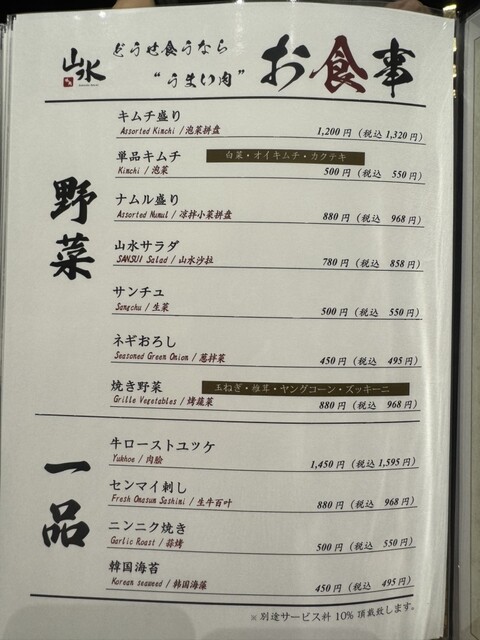 山水
どうせ食うなら
“うまい肉”
お食事
野菜
キムチ盛り
Assorted Kimchi / 泡菜拼盘
1,200円（税込 1,320円）
単品キムチ
白菜・オイキムチ・カクテキ
Kimchi / 泡菜
500円（税込 550円）
ナムル盛り
Assorted Numul / 凉拌小菜拼盘
880円（税込 968円）
山水サラダ
SANSUI Salad / 山水沙拉
780円（税込 858円）
サンチュ
Sangchu / 生菜
500円（税込 550円）
ネギおろし
Seasoned Green Onion / 葱拌菜
450円（税込 495円）
焼き野菜
玉ねぎ・椎茸・ヤングコーン・ズッキーニ
Grille Vegetables / 烤蔬菜
880円（税込 968円）
一品
牛ローストユッケ
Yukhoe / 肉脍
1,450円（税込1,595円）
センマイ刺し
Fresh Omasum Sashimi / 生牛百叶
880円（税込 968円）
ニンニク焼き
Garlic Roast / 蒜烤
500円（税込 550円）
韓国海苔
Korean seaweed / 韩国海藻
450円（税込 495円）
※別途サービス料10％頂戴致します。